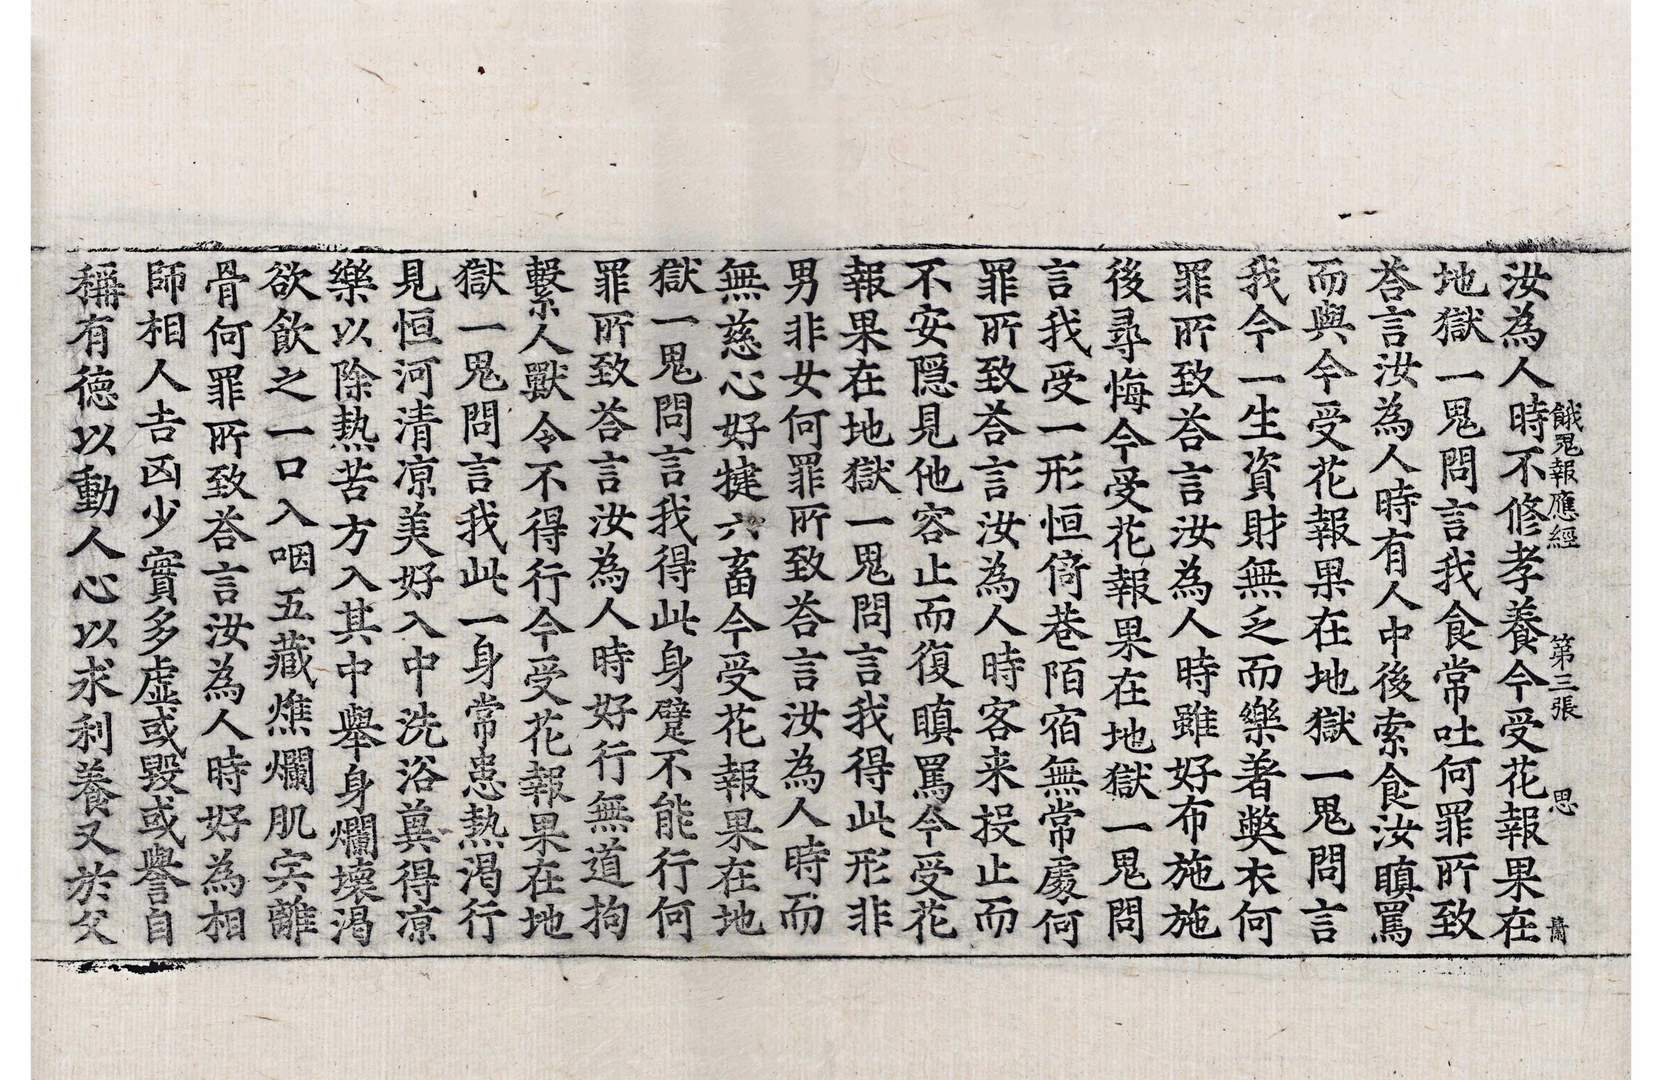 餓鬼報應經 第三張 思
汝為人時不修孝養今受花報果在
地獄一鬼問言我食常吐何罪所致
荅言汝為人時有人中後索食汝瞋罵
而與今受花報果在地獄一鬼問言
我今一生資財無乏而樂著獘衣何
罪所致荅言汝為人時雖好布施施
後尋悔今受花報果在地獄一鬼問
言我受一形恒倚巷陌宿無常處何
罪所致荅言汝為人時客来投止而
不安隱見他容止而復瞋罵今受花
報果在地獄一鬼問言我得此形非
男非女何罪所致荅言汝為人時而
無慈心好揵六畜今受花報果在地
獄一鬼問言我得此身躄不能行何
罪所致荅言汝為人時好行無道拘
繫人獸令不得行今受花報果在地
獄一鬼問言我此一身常患熱渴行
見恒河清凉美好入中洗浴冀得凉
樂以除熱苦方入其中舉身爛壞渴
欲飲之一口入咽五藏燋爛肌宍離
骨何罪所致荅言汝為人時好為相
師相人吉凶少實多虛或毀或譽自
稱有德以動人心以求利養又於父